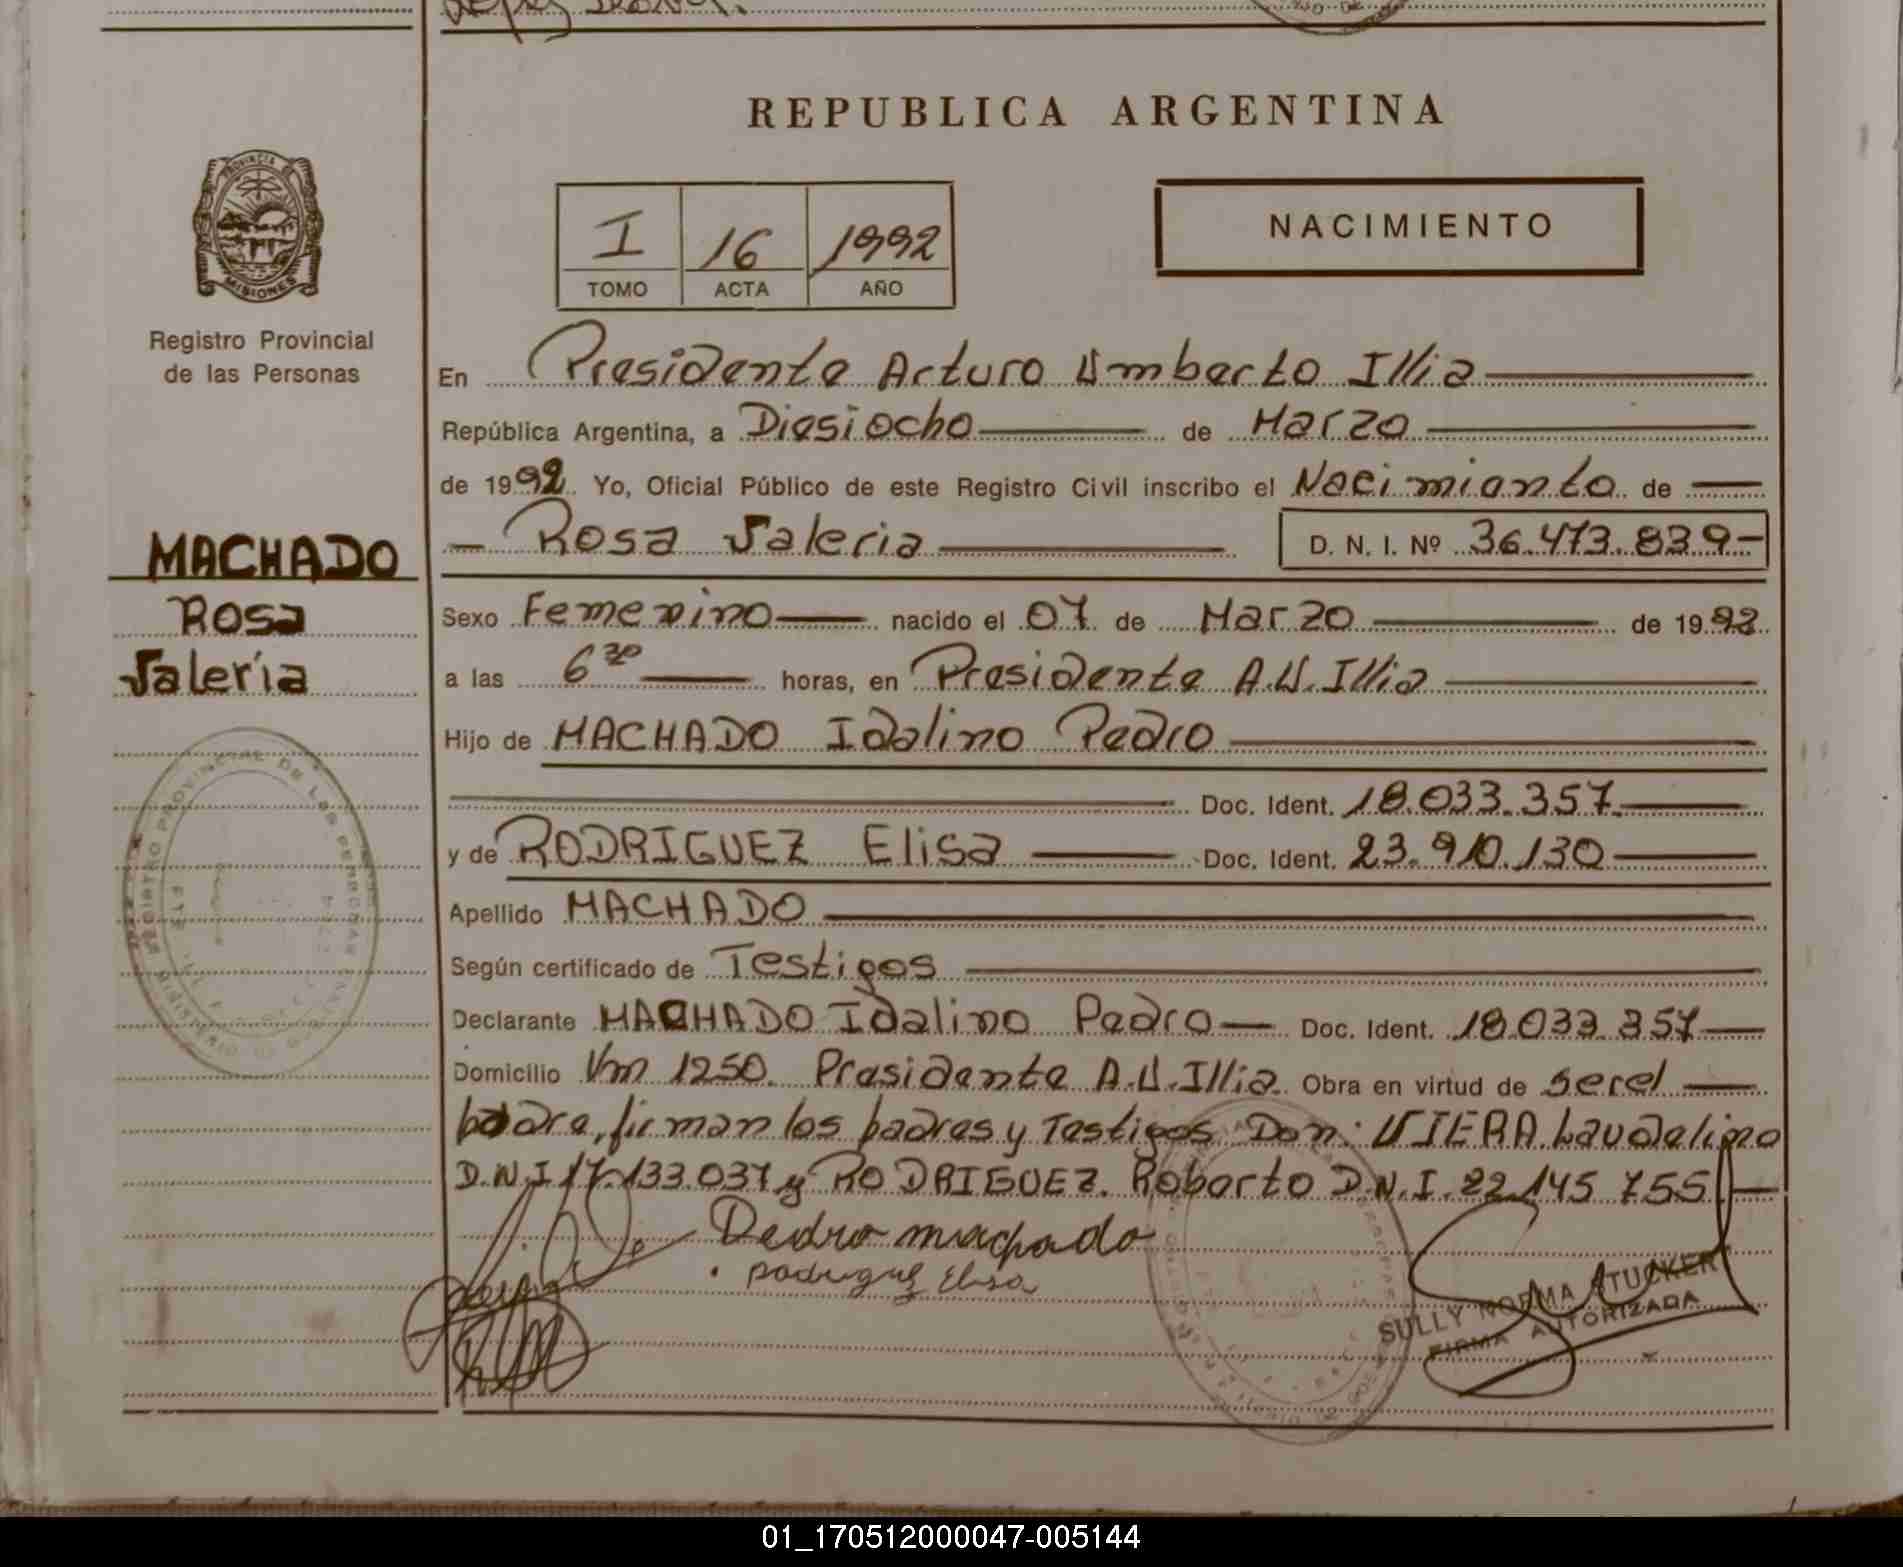 REPUBLICA ARGENTINA
PROVINCIA DE MISIONES
Registro Provincial
de las Personas
I 16 1992
TOMO ACTA AÑO
NACIMIENTO
En Presidente Arturo Umberto Illia
República Argentina, a Diesiocho de Marzo
de 1992 Yo, Oficial Público de este Registro Civil inscribo el Nacimiento de
Rosa Valeria D. N. I. Nº 36.473.839-
MACHADO
Rosa
Valeria
Sexo Femenino nacido el 07 de Marzo de 1992
a las 6 30 horas, en Presidente A.U.Illia
Hijo de MACHADO Idalino Pedro
Doc. Ident. 18.033.357
y de RODRIGUEZ Elisa Doc. Ident. 23.910.130
Apellido MACHADO
Según certificado de Testigos
Declarante MACHADO Idalino Pedro Doc. Ident. 18.033.357
Domicilio Km 1250. Presidente A.U.Illia Obra en virtud de Serel
padre, firman los padres y Testigos Don: VIERA Laudelino
D.N.I 17.133.037 y RODRIGUEZ. Roberto D.N.I. 22.145 755
Pedro machado
Rodriguez Elisa
SULLY NORMA STUCKER
FIRMA AUTORIZADA
01_170512000047-005144